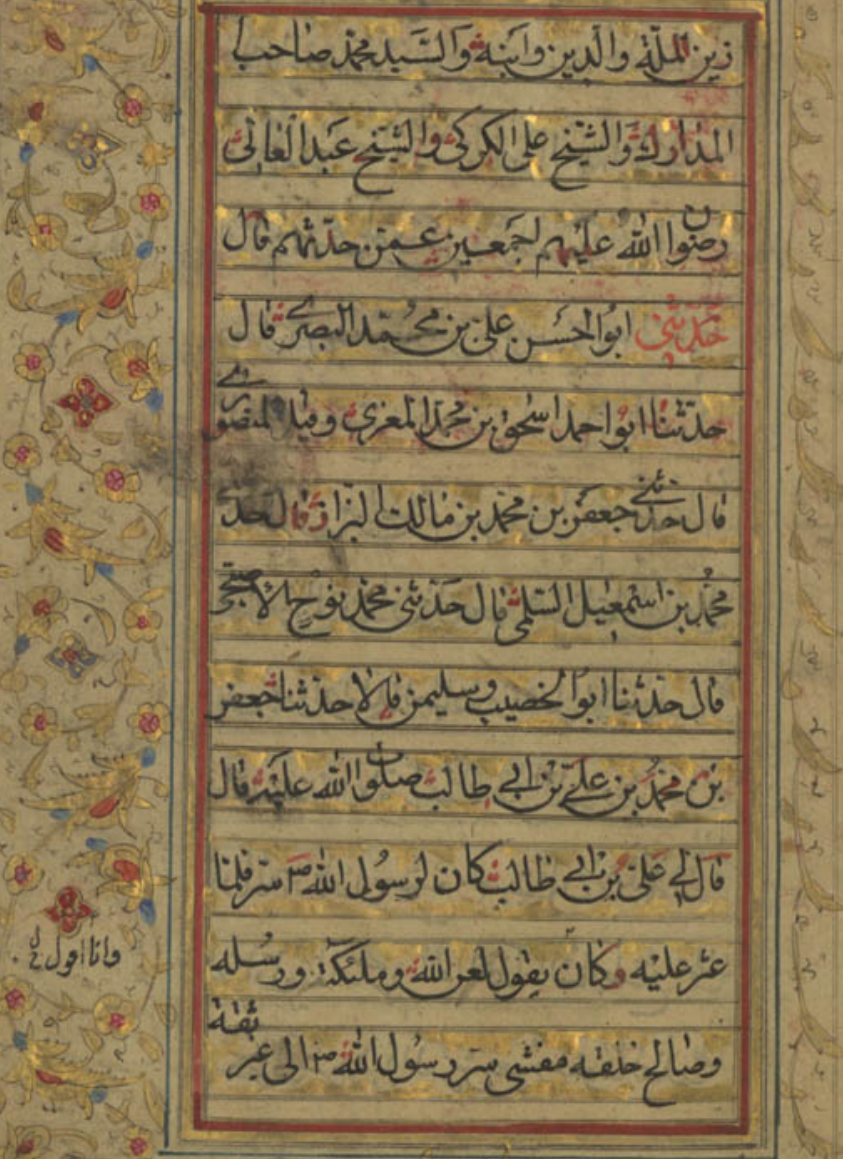 زين الملة والدين وابنه والسيد محمد صاحب
المدارك والشيخ على الكركى والشيخ عبدالعالى
رضوان الله عليهم اجمعين عمن حدثهم قال
حدثنى ابوالحسن على بن محمد البصرى قال
حدثنا ابواحمد اسحق بن محمد المعزى وقيل المنصورى
قال حدثنى جعفر بن محمد بن مالك البزاز قال حدث
محمد بن اسمعيل السلمى قال حدثنى محمد بن نوح الاصبحى
قال حدثنا ابوالخصيب وسليمن قالا حدثنا جعفر
بن محمد بن على بن ابى طالب صلوات الله عليه قال
قال لى على بن ابى طالب كان لرسول الله ص سر قلما
عثر عليه وكان يقول لعن الله وملئكته ورسله
وانا اقول
وصالح خلقه مفشى سر رسول الله ص الى غير ثقة